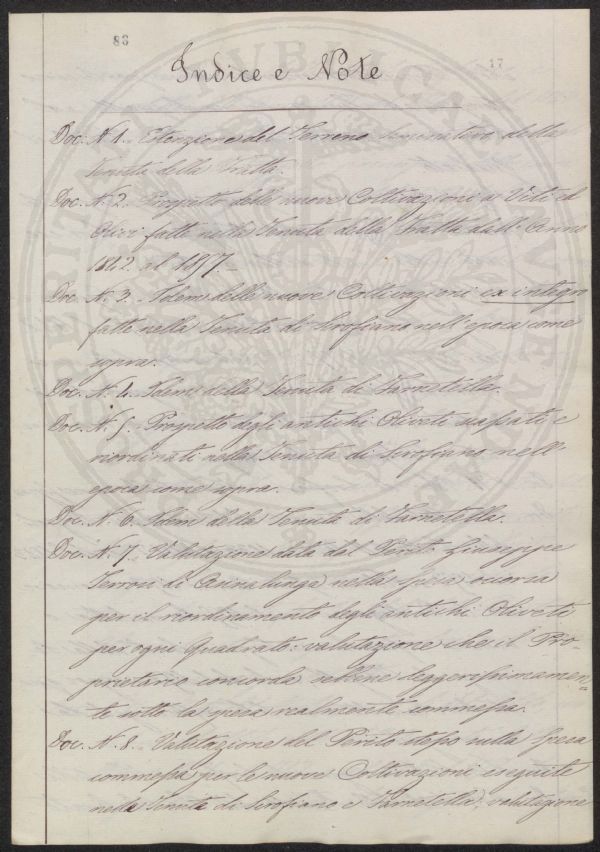 83
17
Indice e Note
Doc. N. 1. Estenzione del Terreno seminativo della
Tenuta della Fratta.
Doc. N. 2. Prospetto delle nuove Coltivazioni a Viti ed
Olivi fatte nella Tenuta della Fratta dall'Anno
1842 al 187
Doc. N. 3. Idem delle nuove Coltivazioni ex integro
fatte nella Tenuta di Scrofiano nell'epoca come
sopra.
Doc. N. 4. Idem della Tenuta di Farnetella.
Doc. N. 5. Prospetto degli antichi Oliveti e
riordinati nella Tenuta di Scrofiano nell'
epoca come sopra.
Doc. N. 6. Idem della Tenuta di Farnetella.
Doc. N. 7. Valutazione data dal Perito Giuseppe
Terrosi di Asinalunga nella spesa occorsa
per il riordinamento degli antichi Oliveti
per ogni Quadrato: valutazione che il Pro-
prietario concorda sebbene leggerissimamen-
te sotto la spesa realmente commessa.
Doc. N. 8. Valutazione del Perito stesso sulla spesa
commessa per le nuove Coltivazioni eseguite
nella Tenuta di Scrofiano e Farnetella; valutazione